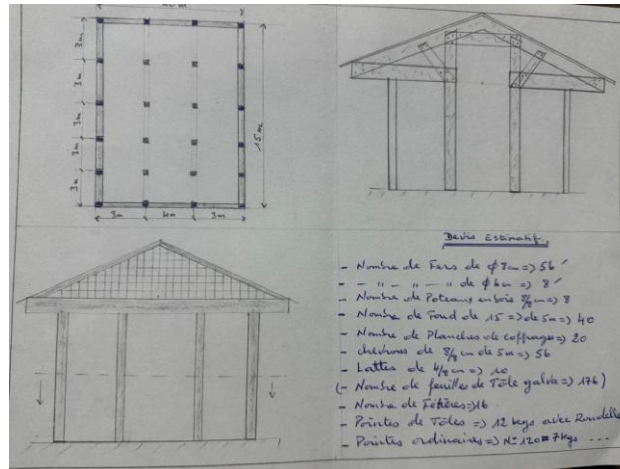 10 m
3m
3m
3m
3m
3m
15 m
3m
4m
3m
Devis Estimatif.
- Nombre de Fers de φ 8m => 56
- - " - " - " de φ 6m => 8
- Nombre de Poteaux en bois 8/8 m => 8
- Nombre de Fond de 15 => de 5m => 40
- Nombre de Planches de coffrages => 20
- chevrons de 8/8 cm de 5m => 56
- Lattes de 4/8 cm => 10
(- Nombre de feuilles de Tôle galva => 176)
- Nombre de Fétières => 16
- Pointes de Tôles => 12 kgs avec Rondelle
- Pointes ordinaires => N° 120 = 7 kgs ...